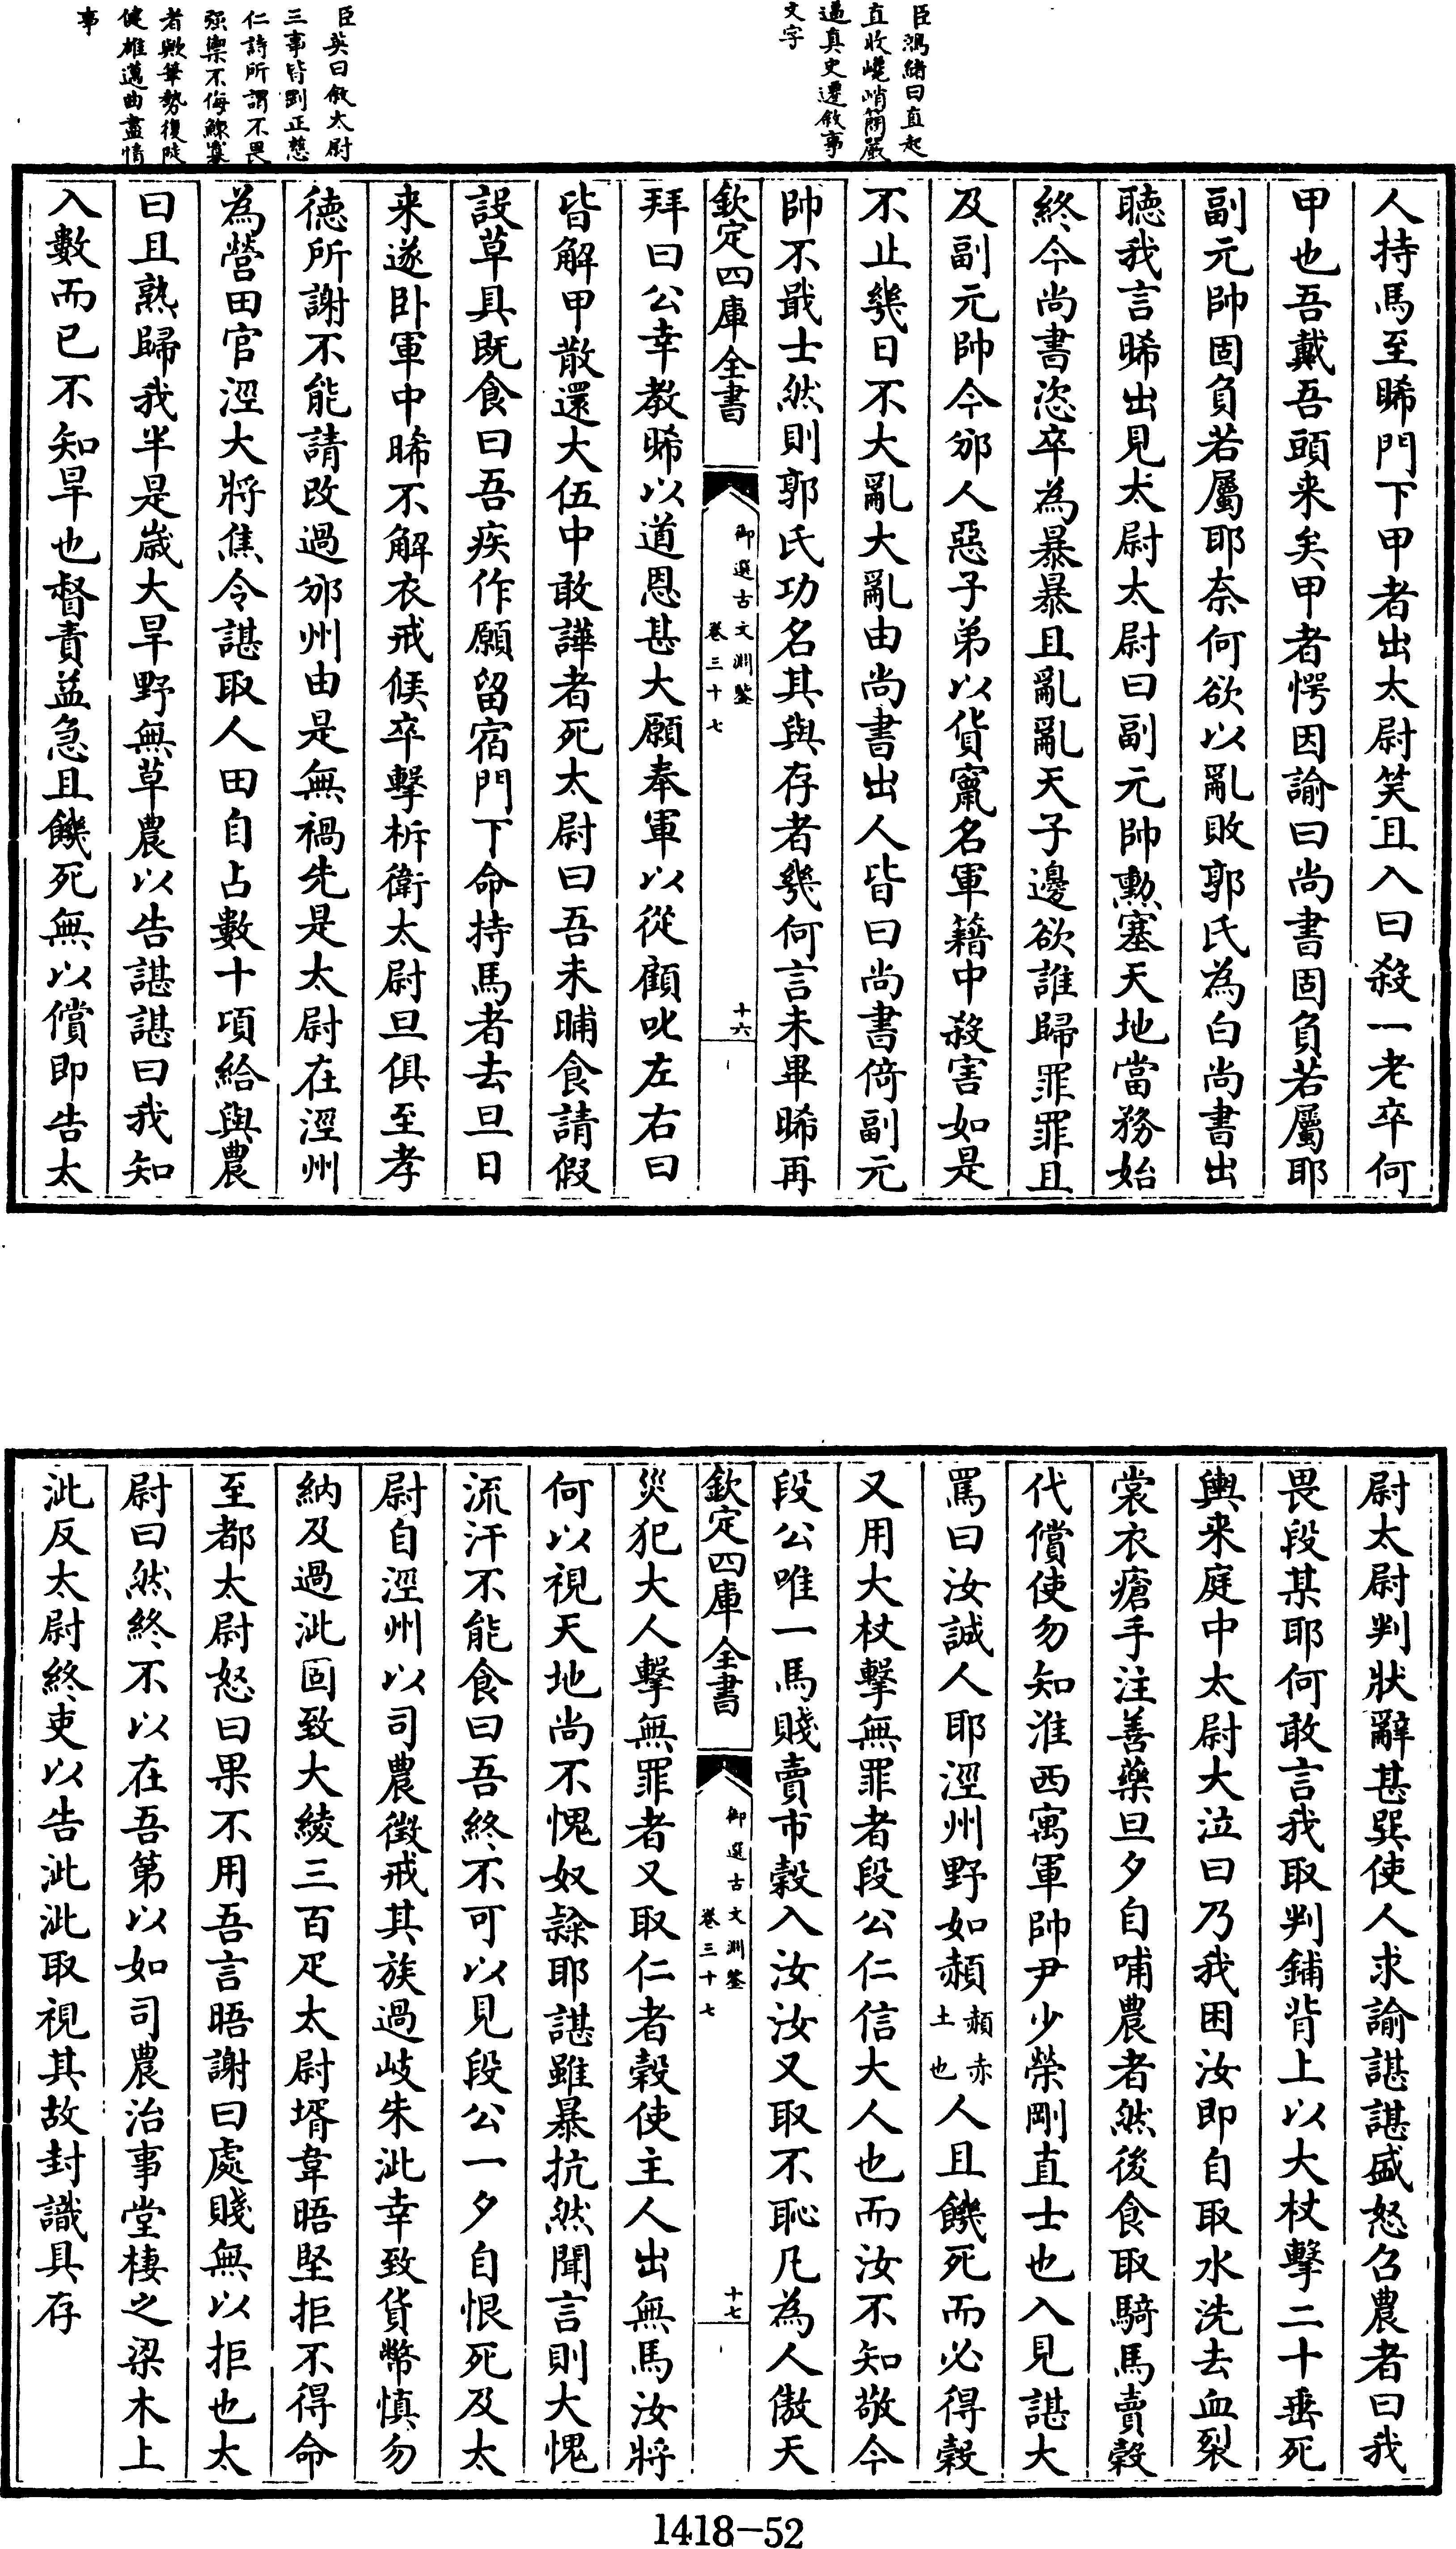 臣鴻緒曰直起
直收嶢峭簡嚴
逼真史遷敘事
文字
臣英曰敘太尉
三事皆剛正慈
仁詩所謂不畏
强禦不侮鰥寡
者歟筆勢復陡
健雄邁曲盡情
事
人持馬至晞門下甲者出太尉笑且入曰殺一老卒何
甲也吾戴吾頭来矣甲者愕因諭曰尚書固負若屬耶
副元帥固負若屬耶奈何欲以亂敗郭氏為白尚書出
聽我言晞出見太尉太尉曰副元帥勲塞天地當務始
終今尚書恣卒為暴暴且亂亂天子邊欲誰歸罪罪且
及副元帥今邠人惡子弟以貨竄名軍籍中殺害如是
不止幾日不大亂大亂由尚書出人皆曰尚書倚副元
帥不戢士然則郭氏功名其與存者幾何言未畢晞再
欽定四庫全書
御選古文淵鑒
卷三十七
十六
拜曰公幸教晞以道恩甚大願奉軍以從顧叱左右曰
皆解甲散還火伍中敢譁者死太尉曰吾未晡食請假
設草具既食曰吾疾作願留宿門下命持馬者去旦日
来遂卧軍中晞不解衣戒候卒擊柝衛太尉旦俱至孝
徳所謝不能請改過邠州由是無禍先是太尉在涇州
為營田官涇大將焦令諶取人田自占數十頃給與農
曰且熟歸我半是歲大旱野無草農以告諶諶曰我知
入數而已不知旱也督責益急且饑死無以償即告太
尉太尉判狀辭甚巽使人求諭諶諶盛怒召農者曰我
畏段某耶何敢言我取判鋪背上以大杖擊二十垂死
輿来庭中太尉大泣曰乃我困汝即自取水洗去血裂
裳衣瘡手注善藥旦夕自哺農者然後食取騎馬賣穀
代償使勿知淮西寓軍帥尹少榮剛直士也入見諶大
罵曰汝誠人耶涇州野如赬赬赤土也人且饑死而必得穀
又用大杖擊無罪者段公仁信大人也而汝不知敬今
段公唯一馬賤賣市穀入汝汝又取不恥凡為人傲天
欽定四庫全書
御選古文淵鑒
卷三十七
十七
災犯大人擊無罪者又取仁者穀使主人出無馬汝將
何以視天地尚不愧奴隸耶諶雖暴抗然聞言則大愧
流汗不能食曰吾終不可以見段公一夕自恨死及太
尉自涇州以司農徵戒其族過岐朱泚幸致貨幣慎勿
納及過泚固致大綾三百疋太尉壻韋晤堅拒不得命
至都太尉怒曰果不用吾言晤謝曰處賤無以拒也太
尉曰然終不以在吾第以如司農治事堂棲之梁木上
泚反太尉終吏以告泚泚取視其故封識具存
1418-52